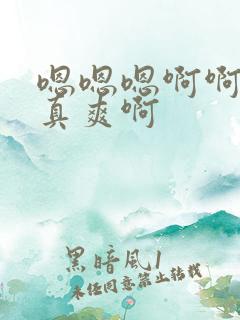 嗯嗯嗯啊啊
真爽啊
黑暗风1
未经同意禁止转载